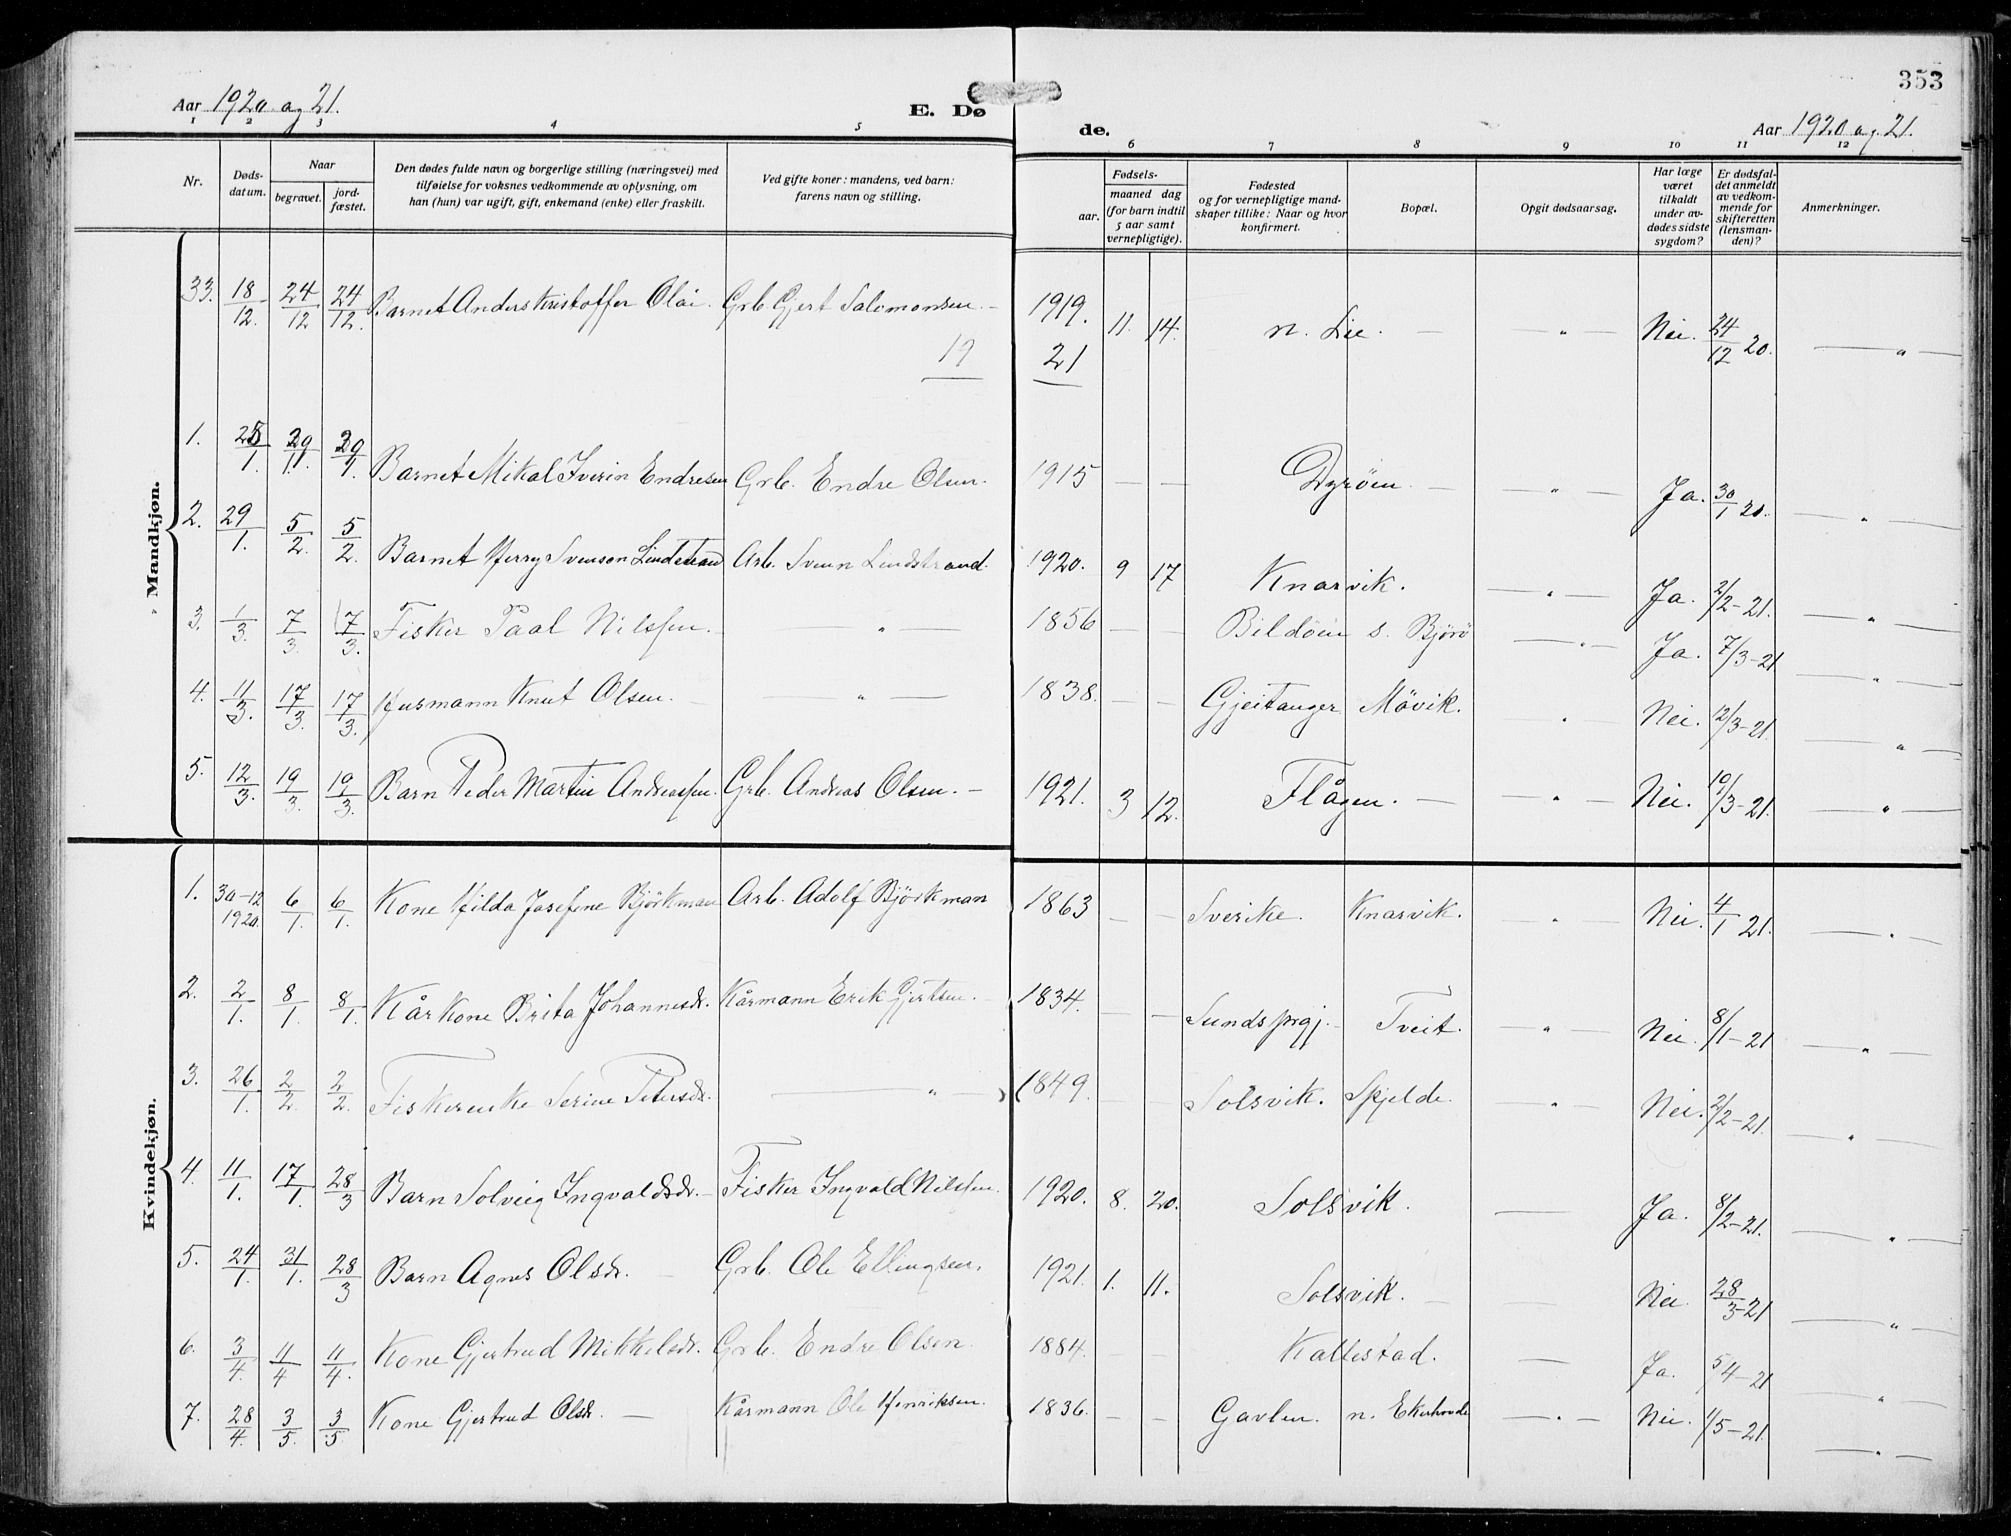 353
Aar 1920 og 21.
E. Dø
de.
Aar 1920 og 21.
1 2 3 4 5 6 7 8 9 10 11 12
Nr.
Døds-
datum.
Naar
begravet.
jord-
fæstet.
Den dødes fulde navn og borgerlige stilling (næringsvei) med
tilføielse for voksnes vedkommende av oplysning, om
han (hun) var ugift, gift, enkemand (enke) eller fraskilt.
Ved gifte koner: mandens, ved barn:
farens navn og stilling.
Fødsels-
aar.
maaned dag
(for barn indtil
5 aar samt
vernepligtige).
Fødested
og for vernepligtige mand-
skaper tillike: Naar og hvor
konfirmert.
Bopæl.
Opgit dødsaarsag.
Har læge
været
tilkaldt
under av-
dødes sidste
sygdom?
Er dødsfal-
det anmeldt
av vedkom-
mende for
skifteretten
(lensman-
den)?
Anmerkninger.
Mandkjøn.
33. 18/12. 24/12 24/12. Barnet Anders Kristoffer Olai. Grb Gjert Salomonsen. — 1919. 11. 14. n. Lie. — — " — Nei. 24/12 20. — " —
19 21
1. 1. 29/1. 29/1. Barnet Mikal Iverin Endresen Grb. Endre Olsen. 1915 — — Dyröen. — — " — Ja. 30/1 20. — " —
2. 29/1. 5/2. 5/2. Barnet Herry Svenson Lindstrand Arb. Sven Lindstrand. 1920. 9 17 Knarvik. — " — Ja. 2/2-21. — " —
3. 1/3. 7/3. 7/3. Fisker Paal Nilssen. — " — 1856 — — Bildöen s. Björö — " — Ja. 7/3-21 — " —
4. 11/3. 17/3. 17/3. Husmann Knut Olsen. — — " — 1838. — — Gjeitanger Mövik. — " — Nei. 12/3-21. — " —
5. 12/3. 19/3. 19/3. Barn Peder Martin Andreassen. Grb. Andreas Olsen. — 1921. 3 12. Flågen. — — " — Nei. 19/3-21. — " —
Kvindekjøn.
1. 30-12 1920. 6/1. 6/1. Kone Hilda Josefine Björkman Arb. Adolf Björkman 1863 — — Sverike. Knarvik. — " — Nei. 4/1 21. — " —
2. 2/1. 8/1. 8/1. Kårkone Brita Johannesdr. Kårmann Erik Gjertsen. — 1834. — — Sundsprgj. Tveit. — " — Nei. 8/1-21 — " —
3. 26/1. 2/2. 2/2. Fiskerenke Serine Petersdr. — " — 1849. — — Solsvik. Spjelde. — " — Nei. 2/2-21. — " —
4. 11/1. 17/1. 28/3 Barn Solveig Ingvaldsdr. — Fisker Ingvald Nilssen. 1920. 8. 20. Solsvik. — Ja. 8/2-21. — " —
5. 24/1. 31/1. 28/3 Barn Agnes Olsdr. — Grb. Ole Ellingsen. 1921. 1. 11. Solsvik. — — Nei. 28/3-21 — " —
6. 3/4. 11/4 11/4. Kone Gjertrud Mikkelsdr. Grb. Endre Olsen. 1884. — — Kallestad. — Ja. 5/4-21 — " —
7. 28/4. 3/5. 3/5. Kone Gjertrud Olsdr. — Kårmann Ole Henriksen. 1836. — Gavlen. n. Ekerhovde — " — Nei. 1/5-21. — " —